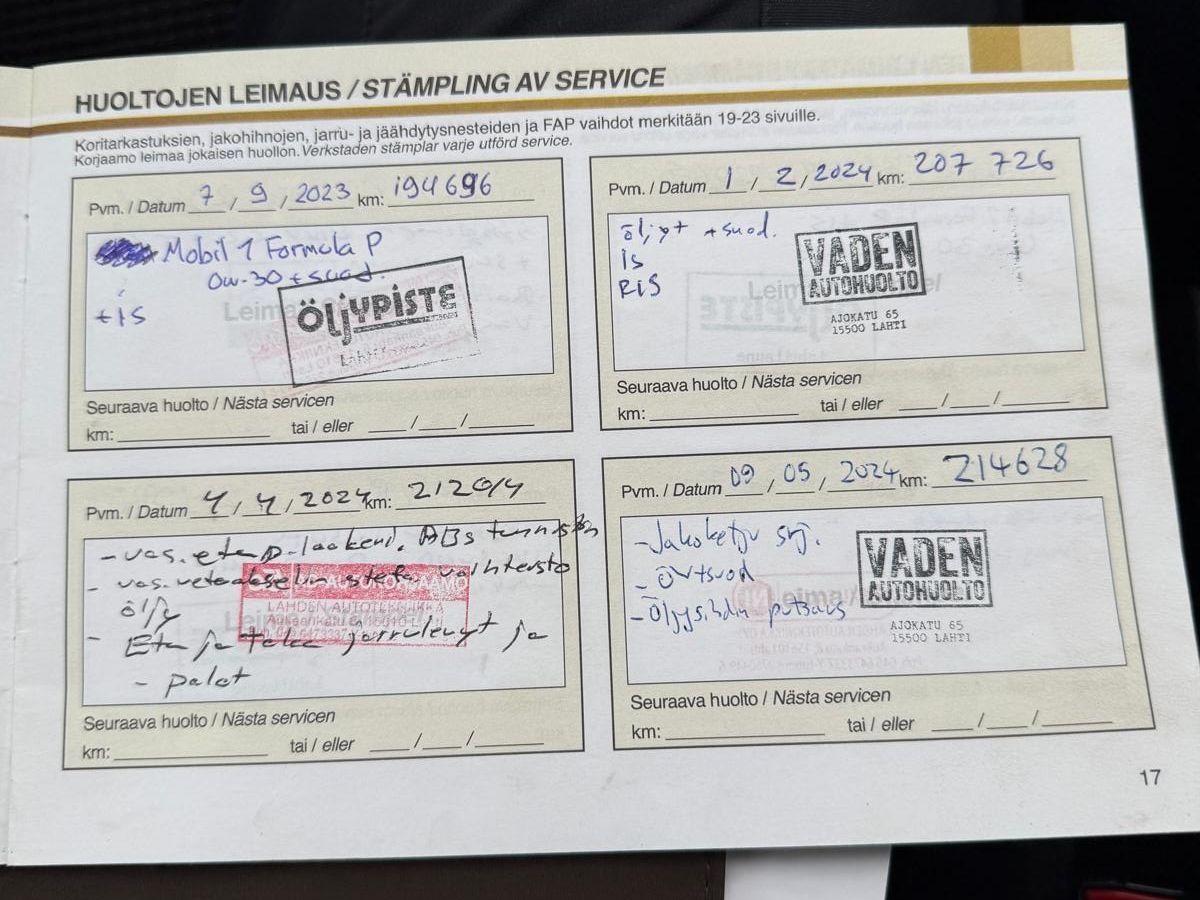 HUOLTOJEN LEIMAUS / STÄMPLING AV SERVICE
Koritarkastuksien, jakohihnojen, jarru- ja jäähdytysnesteiden ja FAP vaihdot merkitään 19-23 sivuille.
Korjaamo leimaa jokaisen huollon. Verkstaden stämplar varje utförd service.
Pvm. / Datum 7 / 9 / 2023 km: 194696
Mobil 1 Formula P
0w-30 + suod.
+ is
ÖLJYPISTE
Seuraava huolto / Nästa servicen
km: tai / eller / /
Pvm. / Datum 1 / 2 / 2024 km: 207 726
öljyt + suod.
is
RIS
VADEN
AUTOHUOLTO
AJOKATU 65
15500 LAHTI
Seuraava huolto / Nästa servicen
km: tai / eller / /
Pvm. / Datum 4 / 4 / 2024 km: 212014
- vas. etu ABS
- vas. vaihteisto
öljy
LAHDEN AUTOTEKNIIKKA
- Etu ja taka jarrulevyt ja
- palat
Seuraava huolto / Nästa servicen
km: tai / eller / /
Pvm. / Datum 09 , 05 , 2024 km: 214628
- Jakoketju srj.
- öv+suod
- Öljysihdin putsaus
VADEN
AUTOHUOLTO
AJOKATU 65
15500 LAHTI
Seuraava huolto / Nästa servicen
km: tai / eller / /
17